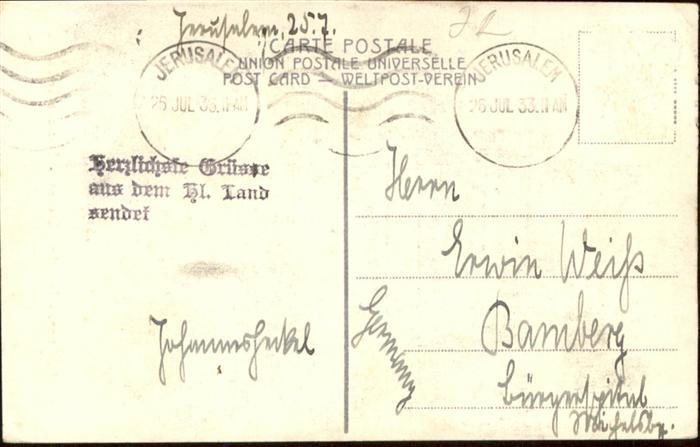 Jerusalem, 25.7.
CARTE POSTALE
UNION POSTALE UNIVERSELLE
POST CARD - WELTPOST-VEREIN
JERUSALEM
26 JUL 33.11 AM
JERUSALEM
26 JUL 33.11 AM
Herzlichste Grüsse
aus dem Hl. Land
sendet
Johannes Heckel
Herrn
Erwin Weiß
Bamberg
Bürgerspital
Michelsbg.
Germany